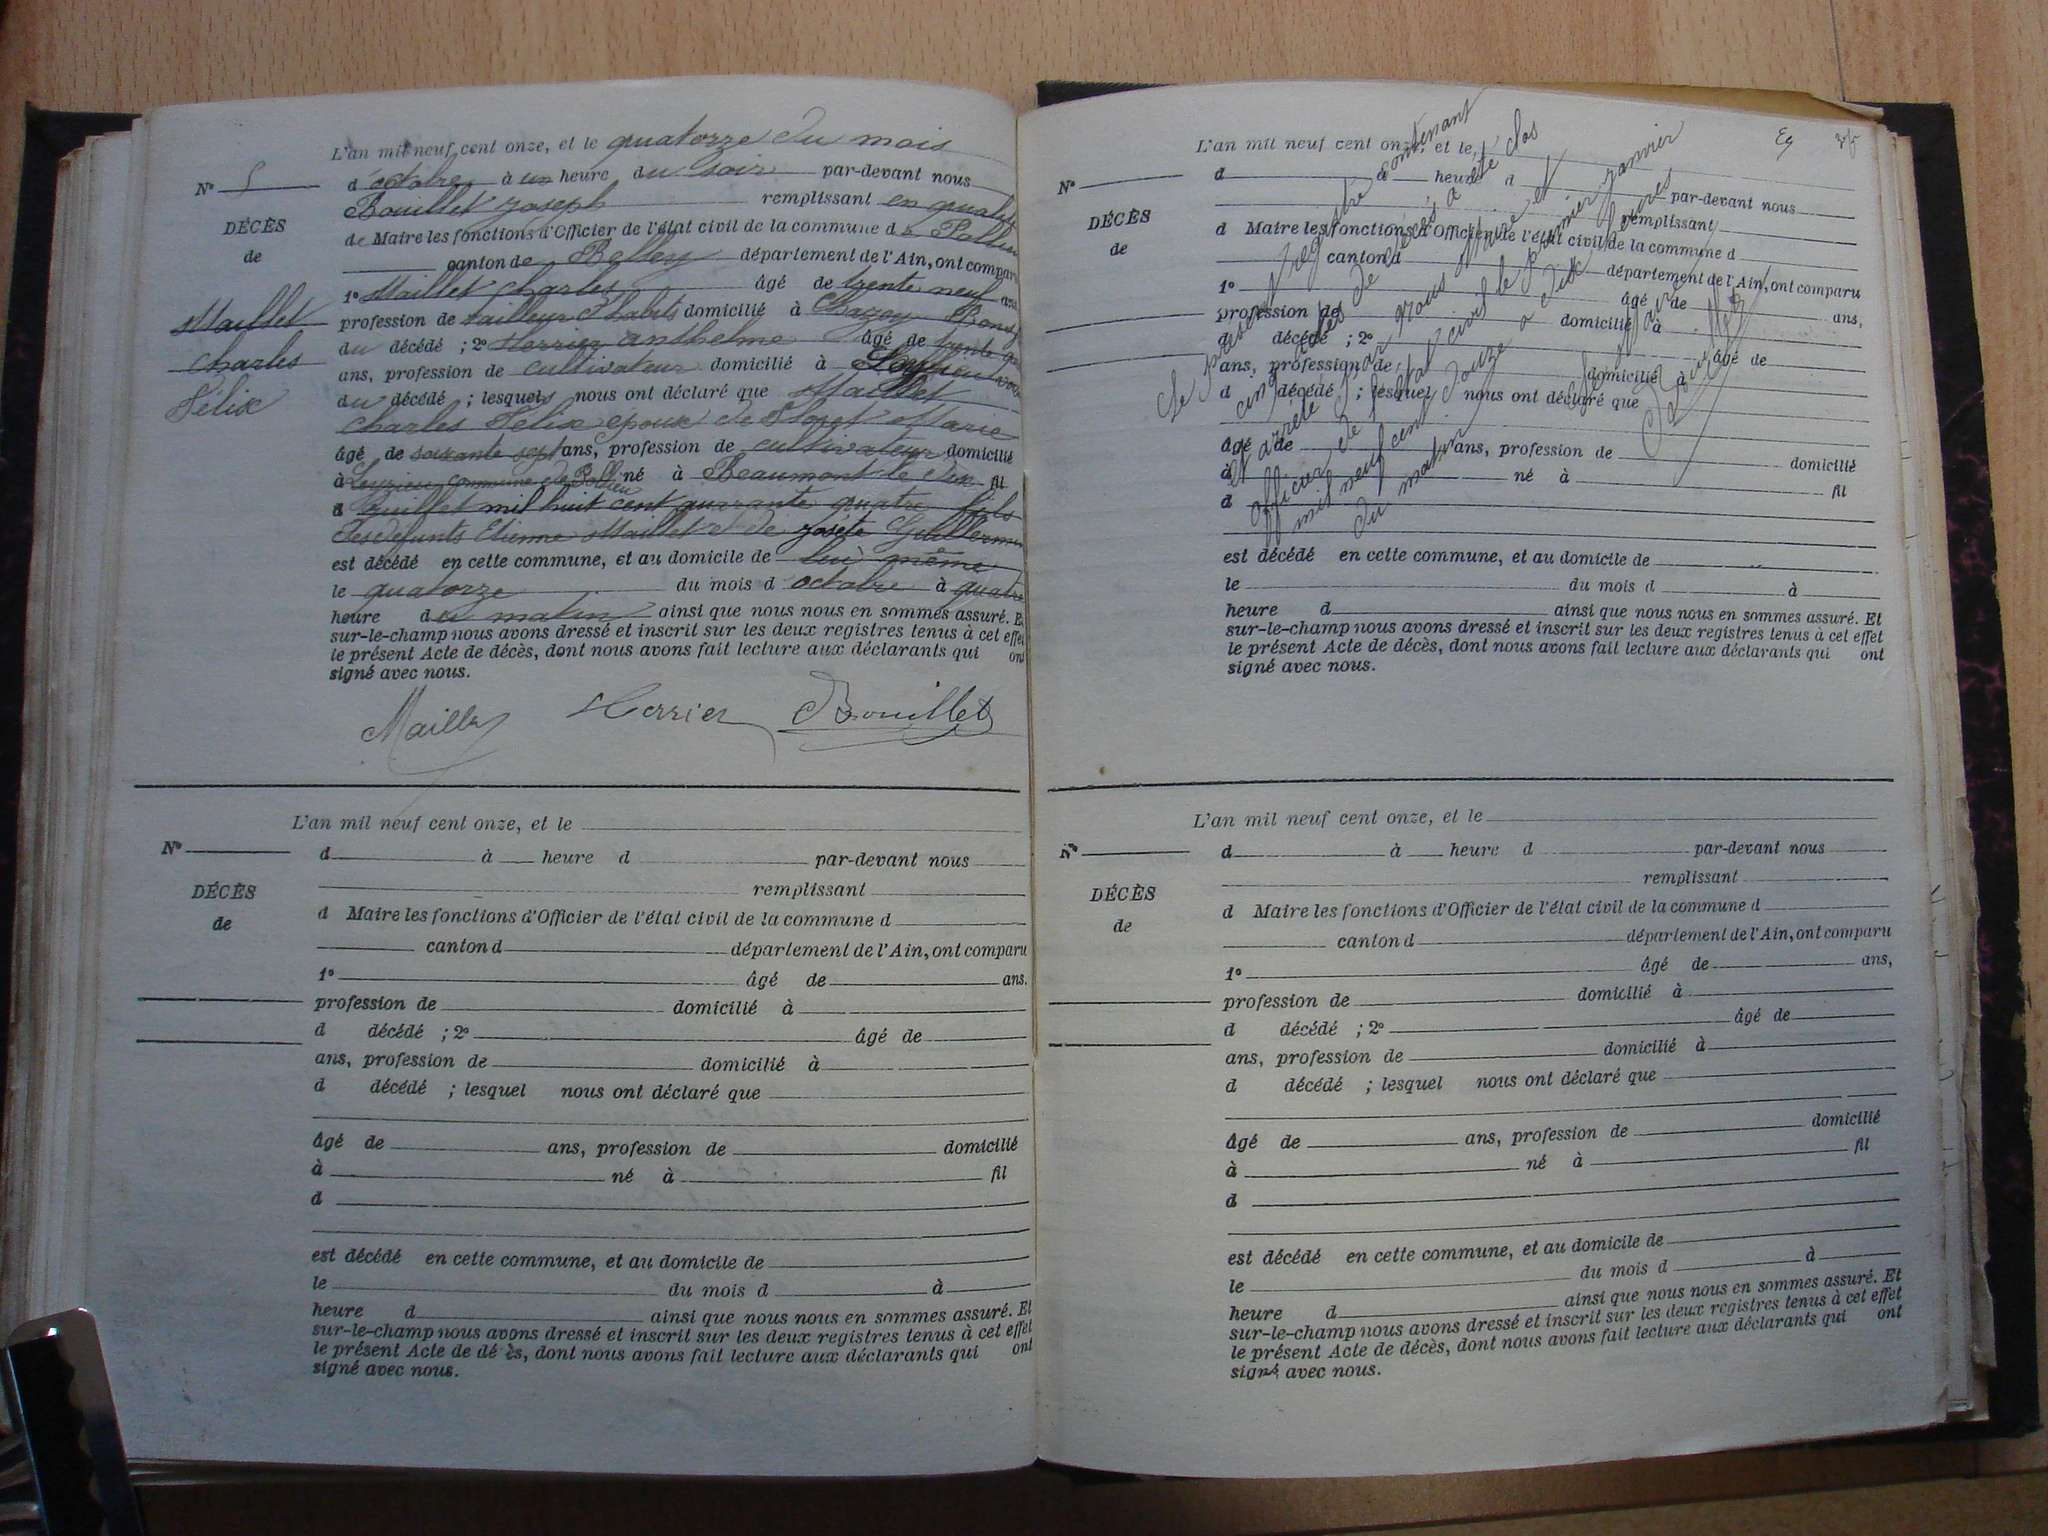 L'an mil neuf cent onze, et le quatorze du mois
N° 5
d'octobre à un heure du soir par-devant nous
Bouillet joseph remplissant en qualité
DÉCÈS
de Maire les fonctions d'Officier de l'état civil de la commune de Pollieu
de
canton de Belley département de l'Ain, ont comparu
1° Maillet Charles âgé de trente neuf ans
Maillet
Charles
Félix
profession de tailleur d'habits domicilié à
du décédé ; 2° anthelme âgé de trente
ans, profession de cultivateur domicilié à
du décédé ; lesquels nous ont déclaré que Maillet
Charles Félix époux de Marie
âgé de soixante sept ans, profession de cultivateur domicilié
à commune de Pollieu né à Beaumont le fil
d juillet mil huit cent quarante quatre fils
des défunts Etienne Maillet et de
est décédé en cette commune, et au domicile de lui même
le quatorze du mois d'octobre à quatre
heure du matin ainsi que nous nous en sommes assuré. E
sur-le-champ nous avons dressé et inscrit sur les deux registres tenus à cet effet
le présent Acte de décès, dont nous avons fait lecture aux déclarants qui ont
signé avec nous.
Bouillet
L'an mil neuf cent onze, et le
N°
d à heure d par-devant nous
remplissant
DÉCÈS
de
d Maire les fonctions d'Officier de l'état civil de la commune d
canton d département de l'Ain, ont comparu
1° âgé de ans.
profession de domicilié à
d décédé ; 2° âgé de
ans, profession de domicilié à
d décédé ; lesquel nous ont déclaré que
âgé de ans, profession de domicilié
à né à fil
d
est décédé en cette commune, et au domicile de
le du mois d à
heure d ainsi que nous nous en sommes assuré. Et
sur-le-champ nous avons dressé et inscrit sur les deux registres tenus à cet effet
le présent Acte de dé ès, dont nous avons fait lecture aux déclarants qui ont
signé avec nous.
L'an mil neuf cent onze, et le
N°
d à heure d par-devant nous
remplissant
DÉCÈS
de
d Maire les fonctions d'Officier de l'état civil de la commune d
canton d département de l'Ain, ont comparu
1° âgé de ans,
profession de domicilié à
d décédé ; 2° âgé de
ans, profession de domicilié à
d décédé ; lesquel nous ont déclaré que
âgé de ans, profession de domicilié
à né à fil
d
est décédé en cette commune, et au domicile de
le du mois d à
heure d ainsi que nous nous en sommes assuré. Et
sur-le-champ nous avons dressé et inscrit sur les deux registres tenus à cet effet
le présent Acte de décès, dont nous avons fait lecture aux déclarants qui ont
signé avec nous.
Le présent registre contenant
cinq actes de décès a été clos
et arrêté par nous maire et
officier de l'état civil le premier janvier
mil neuf cent douze à dix heures
du matin
Le Maire
Bouillet
L'an mil neuf cent onze, et le
N°
d à heure d par-devant nous
remplissant
DÉCÈS
de
d Maire les fonctions d'Officier de l'état civil de la commune d
canton d département de l'Ain, ont comparu
1° âgé de ans,
profession de domicilié à
d décédé ; 2° âgé de
ans, profession de domicilié à
d décédé ; lesquel nous ont déclaré que
âgé de ans, profession de domicilié
à né à fil
d
est décédé en cette commune, et au domicile de
le du mois d à
heure d ainsi que nous nous en sommes assuré. Et
sur-le-champ nous avons dressé et inscrit sur les deux registres tenus à cet effet
le présent Acte de décès, dont nous avons fait lecture aux déclarants qui ont
signé avec nous.